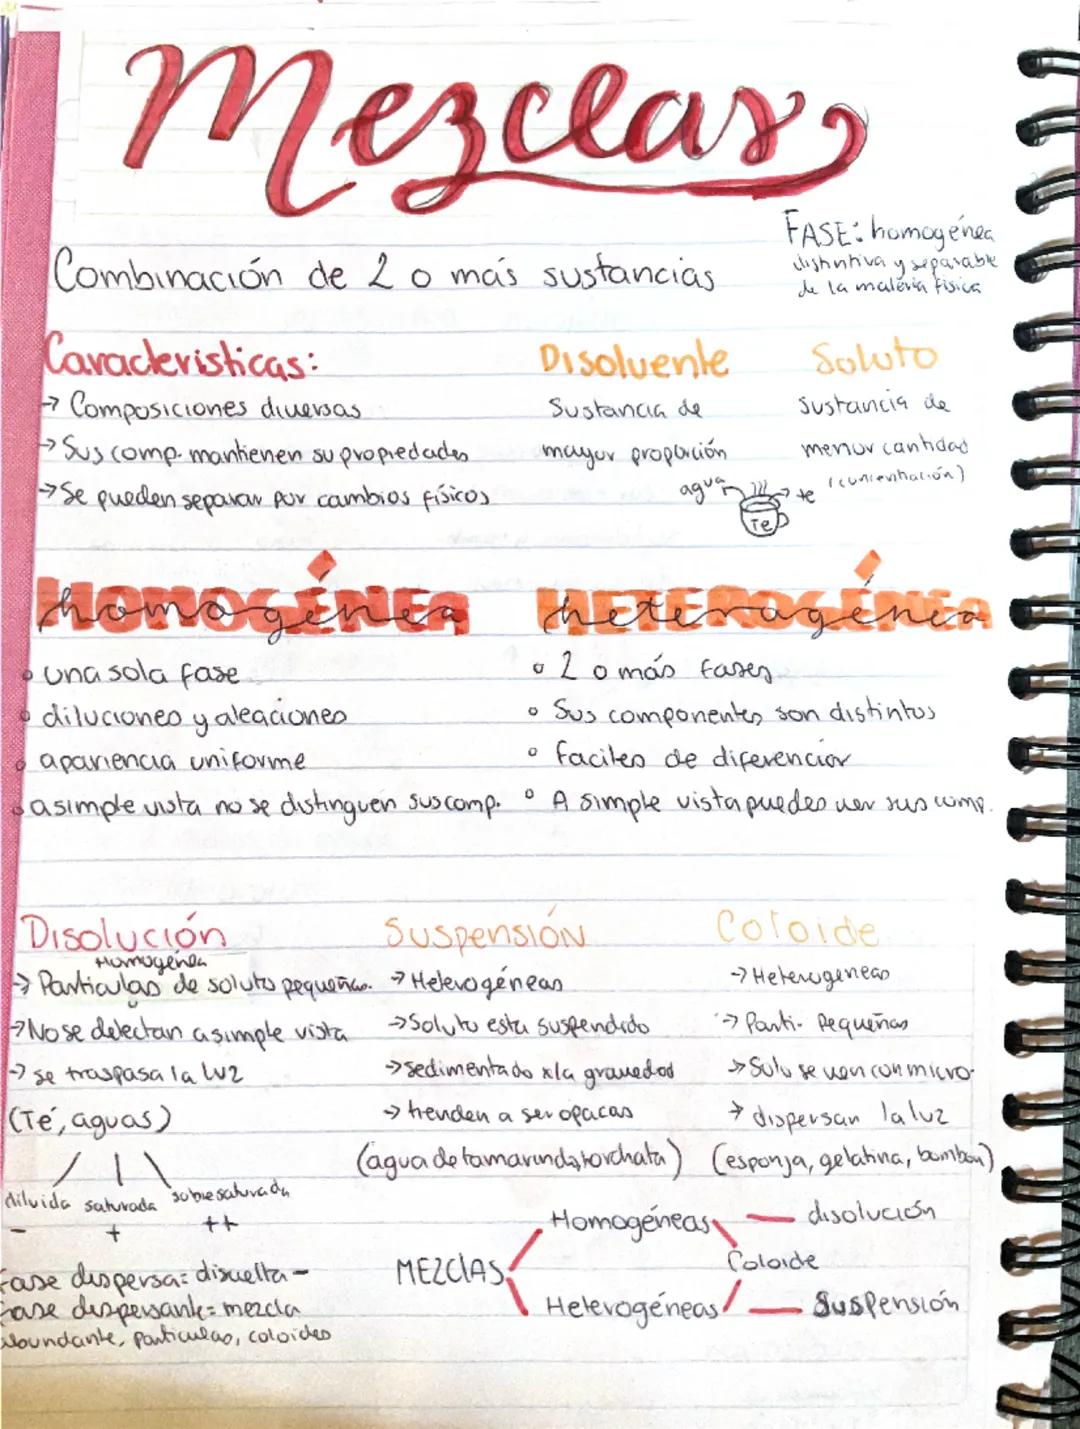 Mezclas
FASE: homogénea
distintiva y separable
de la materia fisica
Combinación de 2 o más sustancias
Caracteristicas:
→ Composiciones diversas
→ Sus comp. mantienen su propiedades
→ Se pueden separar por cambios físicos
Disoluente
Sustancia de
mayor proporción
Soluto
Sustancia de
menor cantidad
(concentración)
agua
te
Te
HOMOGÉNEA
homogénea
• una sola fase
• diluciones y aleaciones
• apariencia uniforme
• a simple vista no se distinguen sus comp.
HETEROGÉNEA
heterogénea
• 2 o más fases
• Sus componentes son distintos
• faciles de diferenciar
• A simple vista puedes ver sus comp.
Disolución
Homogénea
→ Particulas de soluto pequeñas.
→ No se detectan a simple vista
→ se traspasa la luz
(Té, aguas)
diluida saturada sobresaturada
- + ++
Fase dispersa: disuelta -
Fase dispersante = mezcla
abundante, particulas, coloides
Suspensión
→ Heterogéneas
→ Soluto esta suspendido
→ sedimentado x la gravedad
→ trenden a ser opacas
(agua de tamarindo, horchata)
Coloide
→ Heterogeneas
→ Parti. Pequeñas
→ Solo se ven con micro.
→ dispersan la luz
(esponja, gelatina, bombon)
MEZClAS
Homogéneas
disolución
Coloide
Heterogéneas
Suspensión